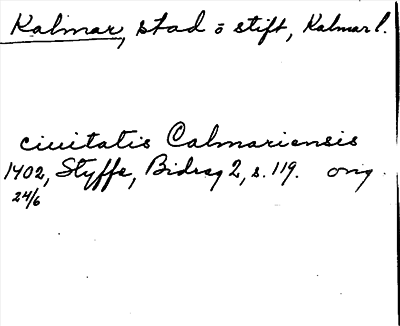 Kalmar, stad o stift, Kalmar l.
ciuitatis Calmariensis
1402, Styffe, Bidrag 2, s. 119. orig.
24/6